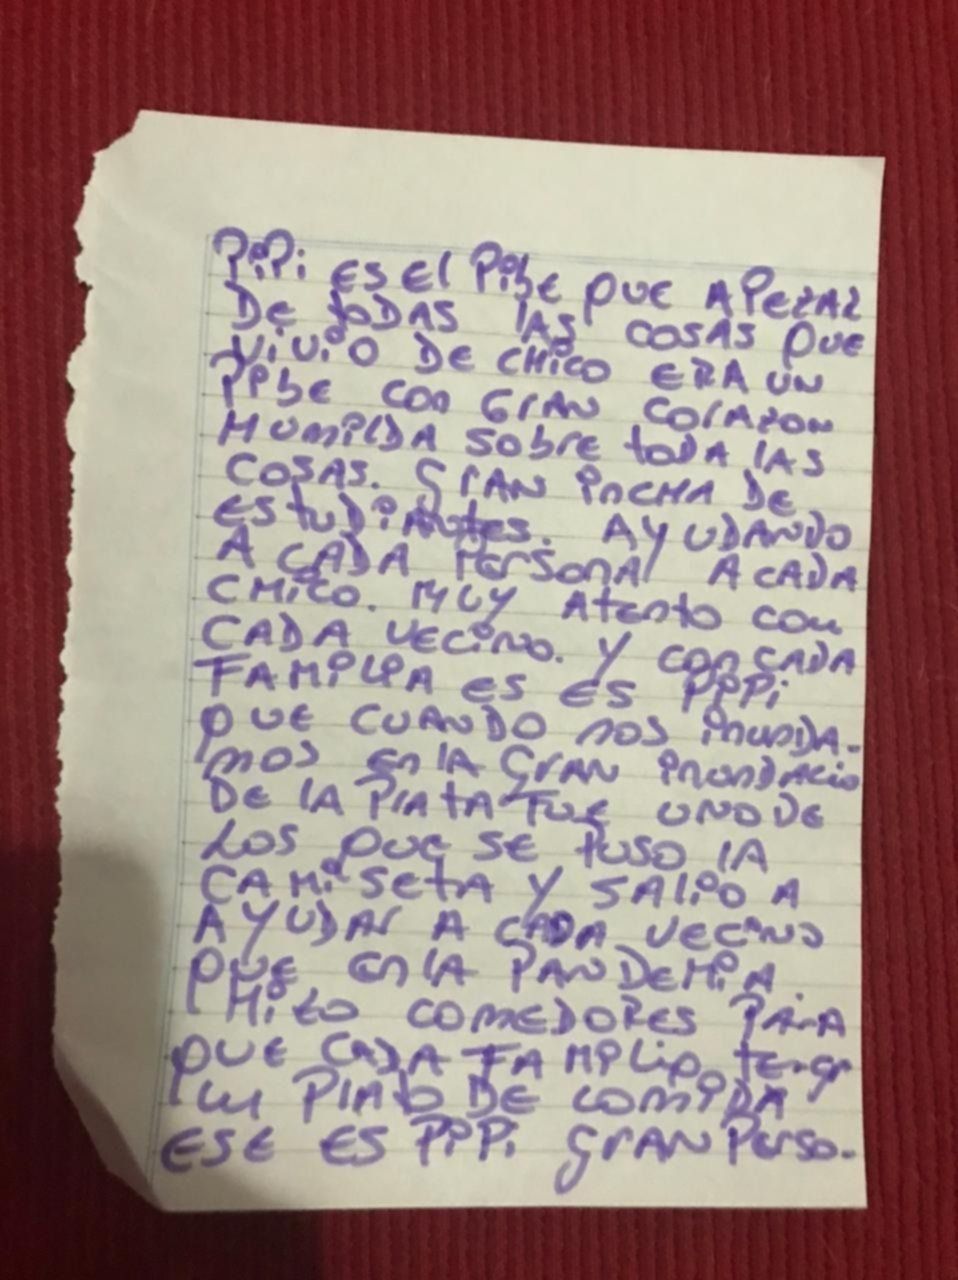 PiPi ES El PibE QUE APEZAR
DE toDAS lAS COSAS QUE
ViviO DE CHiCO ERA UN
PibE con GrAN CorAzon
HUMilDA SobrE toDA lAS
COSAS. GrAN incHA DE
EStuDiAntes. AYUDANDO
A CADA PErSonA A CADA
CHico. MUY AtEnto con
CADA VEciNO. Y con CADA
FAMiliA ES ES PiPi
QUE CUANDO nos inunDA-
mos En lA GrAN inonDAcio
DE lA PlAtA FUE UNO DE
LOS QUE SE PUSO lA
CAMiSEtA Y SAliO A
AYUDAr A CADA VEcino
QUE En lA PANDEMiA.
Hizo COMEDORES PArA
QUE CADA FAMilia tenga
un PlAto DE comiDA
ESE ES PiPi GrAN PErso-